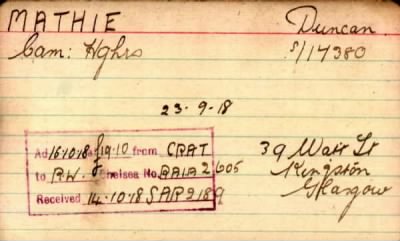 MATHIE Duncan
Cam: Hghrs S/17380
23-9-18
Ad 16.10.18 19.10 from CRAT
to R.W. Chelsea No. RA1A2605
Received 14.10.18 SAR 2189
39 Watt St
Kingston
Glasgow